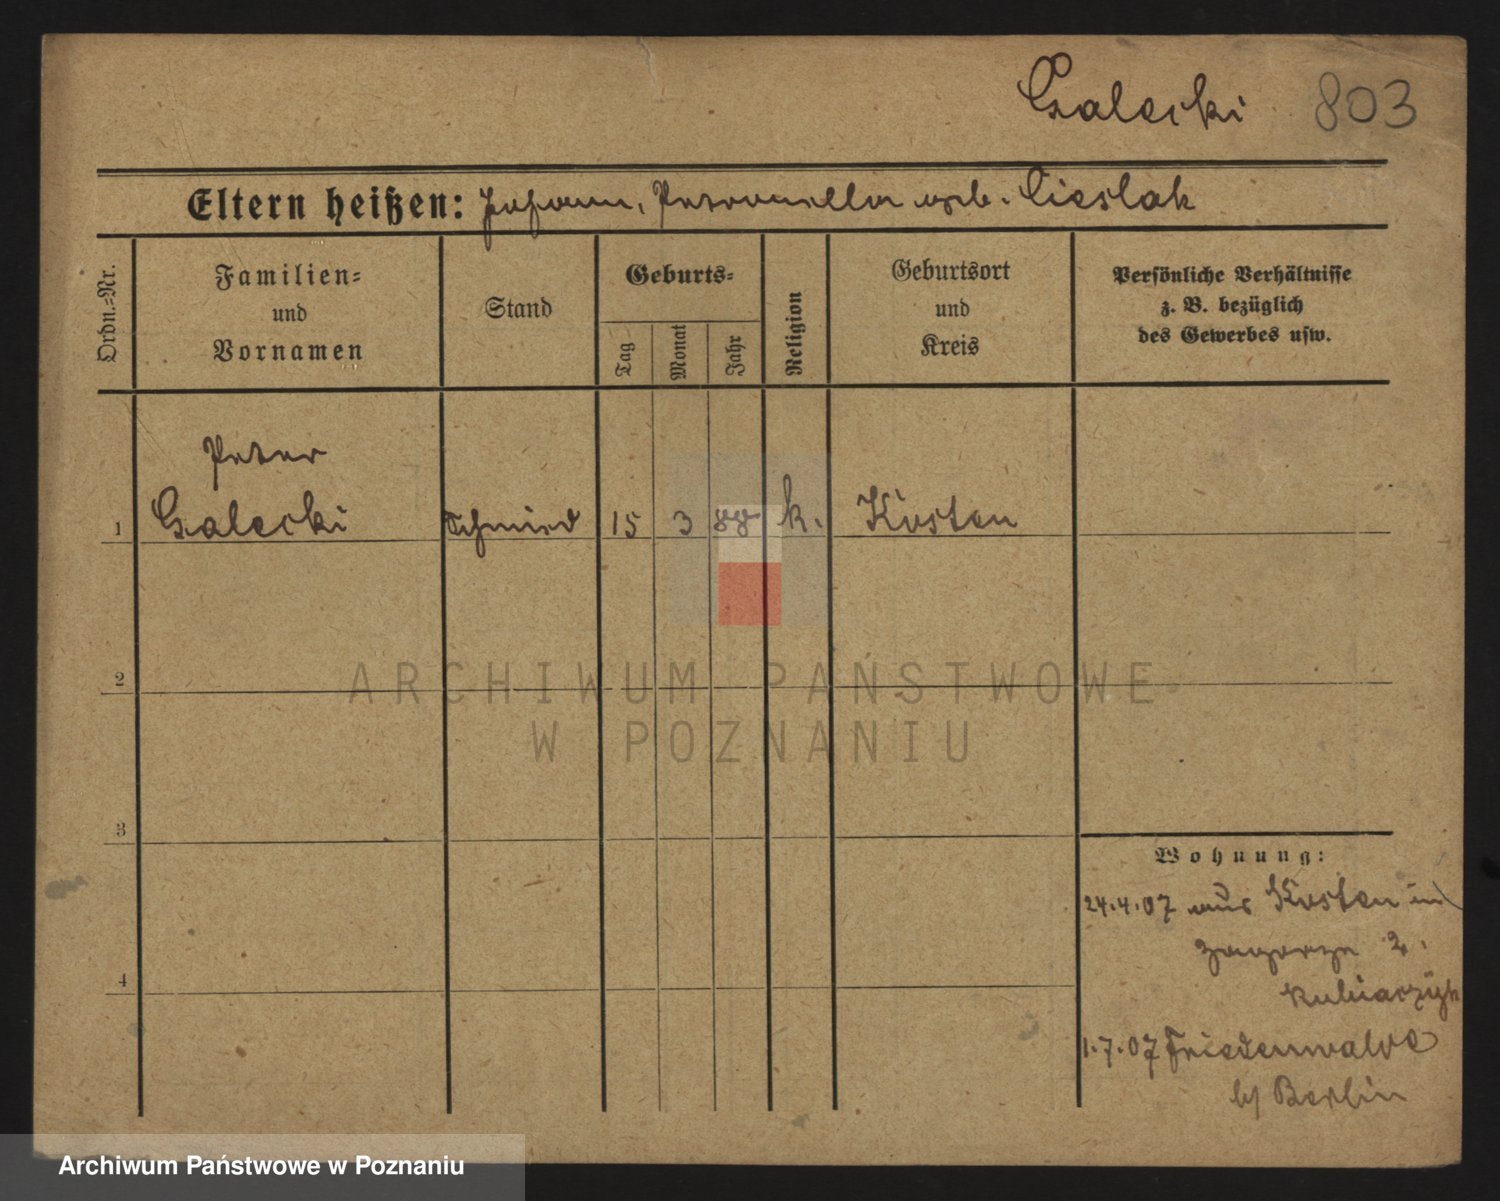 Galecki 803
Eltern heißen: Johann, Petronella geb. Cieslak
Ordn.=Nr.
Familien=
und
Vornamen
Stand
Geburts=
Tag
Monat
Jahr
Religion
Geburtsort
und
Kreis
Persönliche Verhältnisse
z. B. bezüglich
des Gewerbes usw.
Peter
1 Galecki Schmied 15 3 88 k. Kosten
2
3
4
Wohnung:
24.4.07 aus Kosten in
Zagorze 2.
Kubiaczyk
1.7.07 Friedenwalde
b/ Berlin
ARCHIWUM PAŃSTWOWE
W POZNANIU
Archiwum Państwowe w Poznaniu